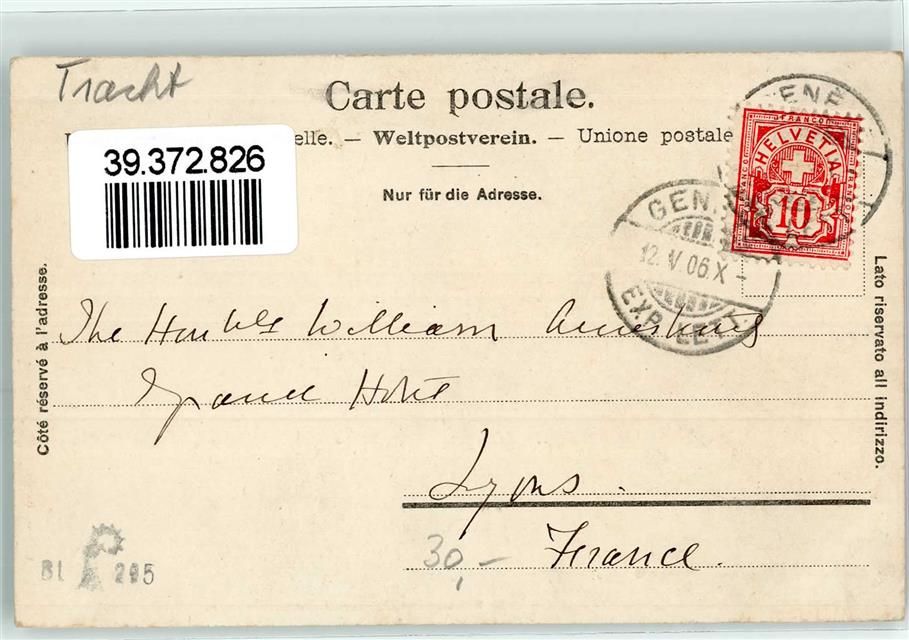 Tracht
Carte postale.
elle. — Weltpostverein. — Unione postale
39.372.826
Nur für die Adresse.
FRANCO
HELVETIA
FRANCO
FRANCO
10
ENÈ
GEN
12.V.06.X–
EXP. LET
Côté réservé à l'adresse.
Lato riservato all indirizzo.
The Honble William
Grand Hotel
Lyons.
France.
30,-
BL 295